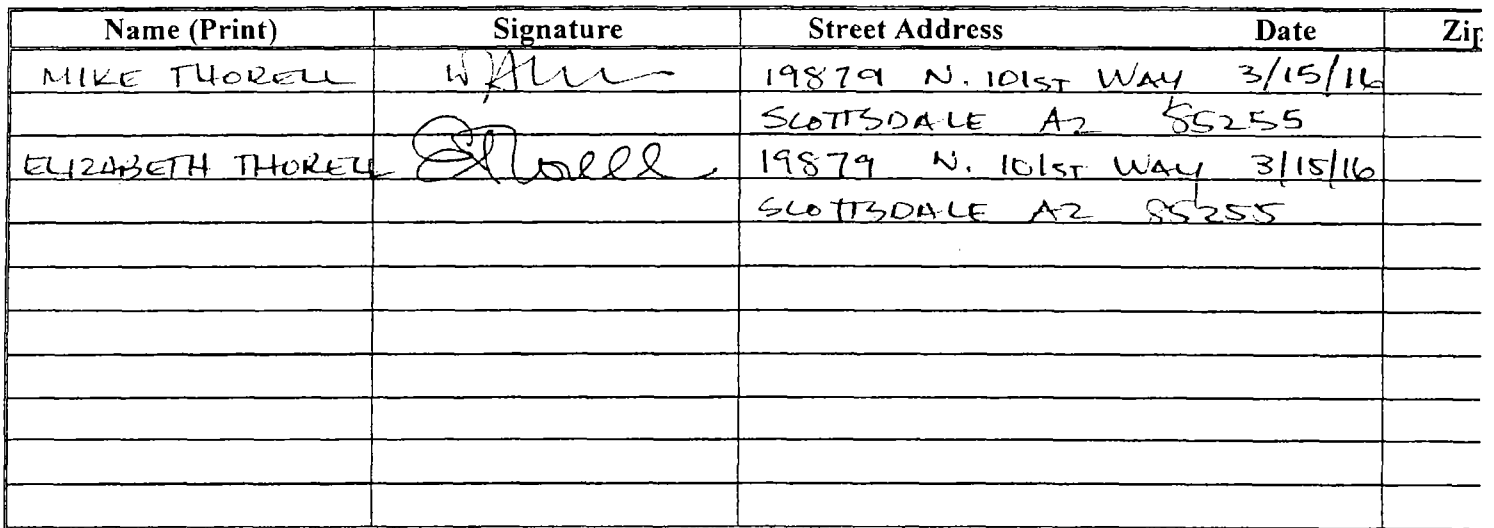 Name (Print) Signature Street Address Date Zip
MIKE THORELL 19879 N. 101ST WAY 3/15/16
SCOTTSDALE AZ 85255
ELIZABETH THORELL EThorell 19879 N. 101ST WAY 3/15/16
SCOTTSDALE AZ 85255